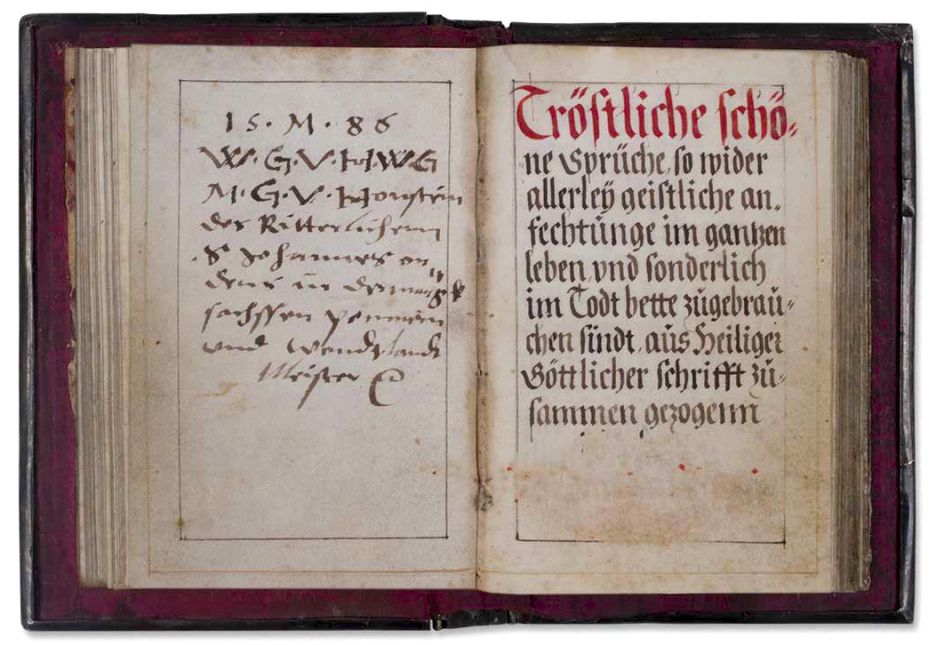 15 · M · 86
W · G · V · H · W · G
M · G · V · Honstein
des Ritterlichenn
S Johannes or¬
dens in der margk
sachssen pommern
und Wendtlandt
Meister
Tröstliche schö¬
ne Sprüche, so wider
allerleÿ geistliche an¬
fechtunge im gantzen
leben vnd sonderlich
im Todt bette zugebrau¬
chen sindt, aus Heiliger
Göttlicher schrifft zu¬
sammen gezogenn